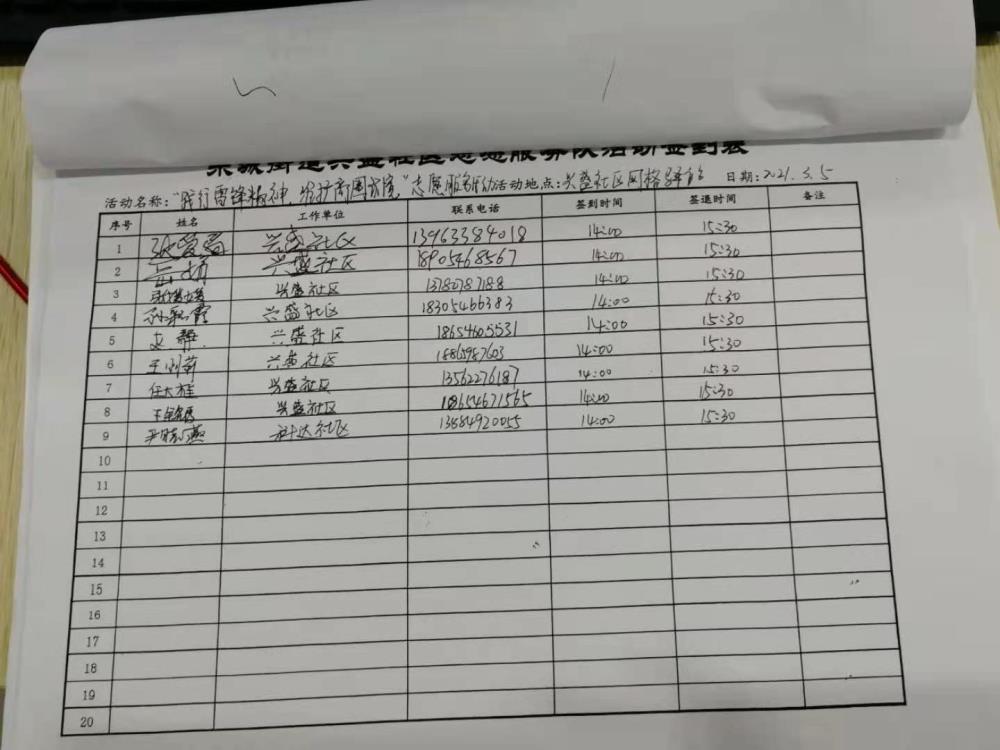 街道兴盛社区志愿服务队活动签到表
活动名称："践行雷锋精神，维护商圈环境"志愿服务活动 活动地点：兴盛社区网格驿站 日期：2021.3.5
序号 姓名 工作单位 联系电话 签到时间 签退时间 备注
1 兴盛社区 13963384018 14:00 15:30
2 兴盛社区 18905468567 14:00 15:30
3 兴盛社区 13780787188 14:00 15:30
4 兴盛社区 18305466383 14:00 15:30
5 文静 兴盛社区 18654605531 14:00 15:30
6 兴盛社区 18865987603 14:00 15:30
7 任大桂 兴盛社区 13562276187 14:00 15:30
8 兴盛社区 18654671565 14:00 15:30
9 尹晓燕 科达社区 13884920055 14:00 15:30
10
11
12
13
14
15
16
17
18
19
20